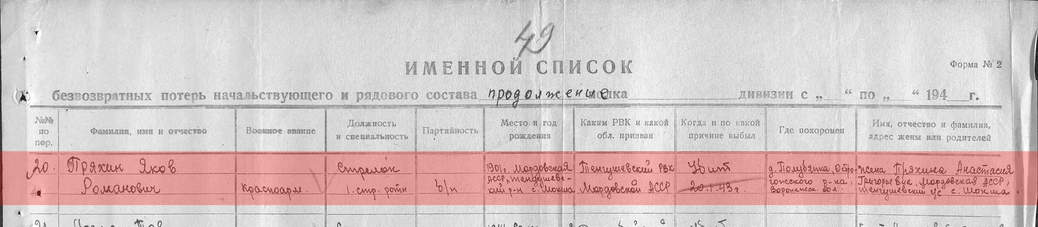 49
ИМЕННОЙ СПИСОК
Форма № 2
безвозвратных потерь начальствующего и рядового состава продолжение дивизии с „ “ по „ “ 194 г.
№№ по пор.
Фамилия, имя и отчество
Военное звание
Должность и специальность
Партийность
Место и год рождения
Каким РВК и какой обл. призван
Когда и по какой причине выбыл
Где похоронен
Имя, отчество и фамилия, адрес жены или родителей
20. Пряхин Яков
Романович
Красноарм.
Стрелок
1. стр. роты
б/п
1901 г. Мордовская
АССР, Теньгушевс-
кий р-н с. Мокша
Теньгушевский РВК
Мордовской АССР
Убит
20.1.43 г.
Воронежск. обл.
жена Пряхина Анастасия
Мордовская АССР,
с. Мокша